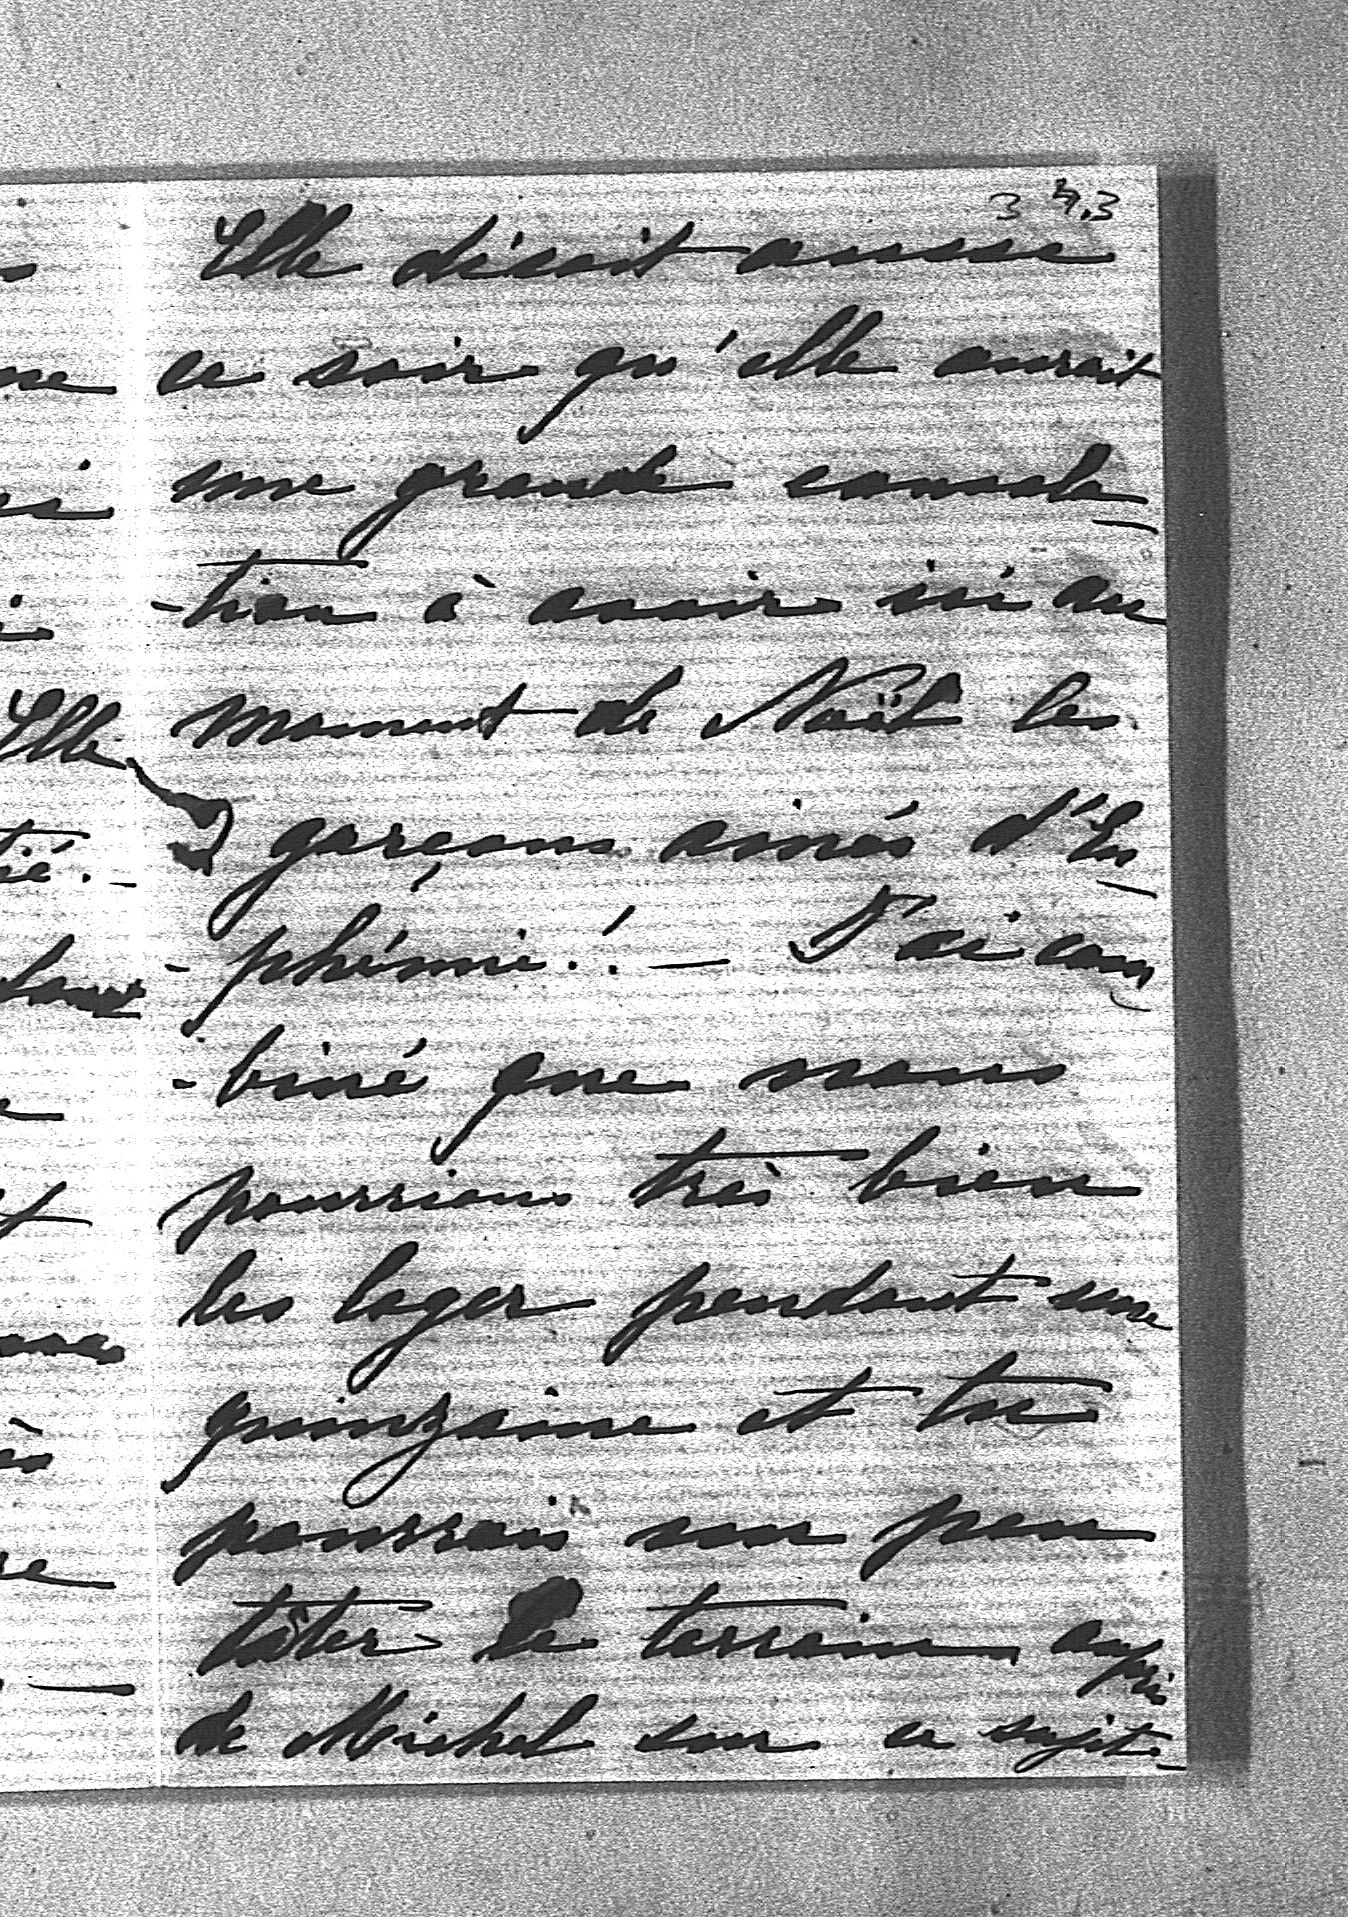 3 3
Elle disait aussi
ce soir qu'elle aurait
une grande consola-
-tion à avoir ici au
moment de Noël les
garçons ainés d'Eu-
-phémie!. — J'ai com-
-biné que nous
pourrions très bien
les loger pendant une
quinzaine et tu
pourrais un peu
tâter le terrain auprès
de Michel sur ce sujet. —